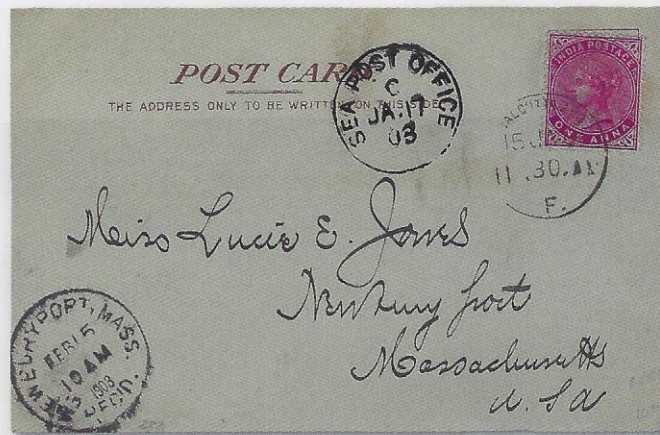 POST CARD
THE ADDRESS ONLY TO BE WRITTEN ON THIS SIDE.
SEA POST OFFICE
C
JA. 17
03
INDIA POSTAGE
ONE ANNA
11.30.
F.
Miss Lucie E. Jones
Newbury port
Massachusetts
U.S.A
NEWBURYPORT, MASS.
FEB 15
10 AM
1903
REC'D.